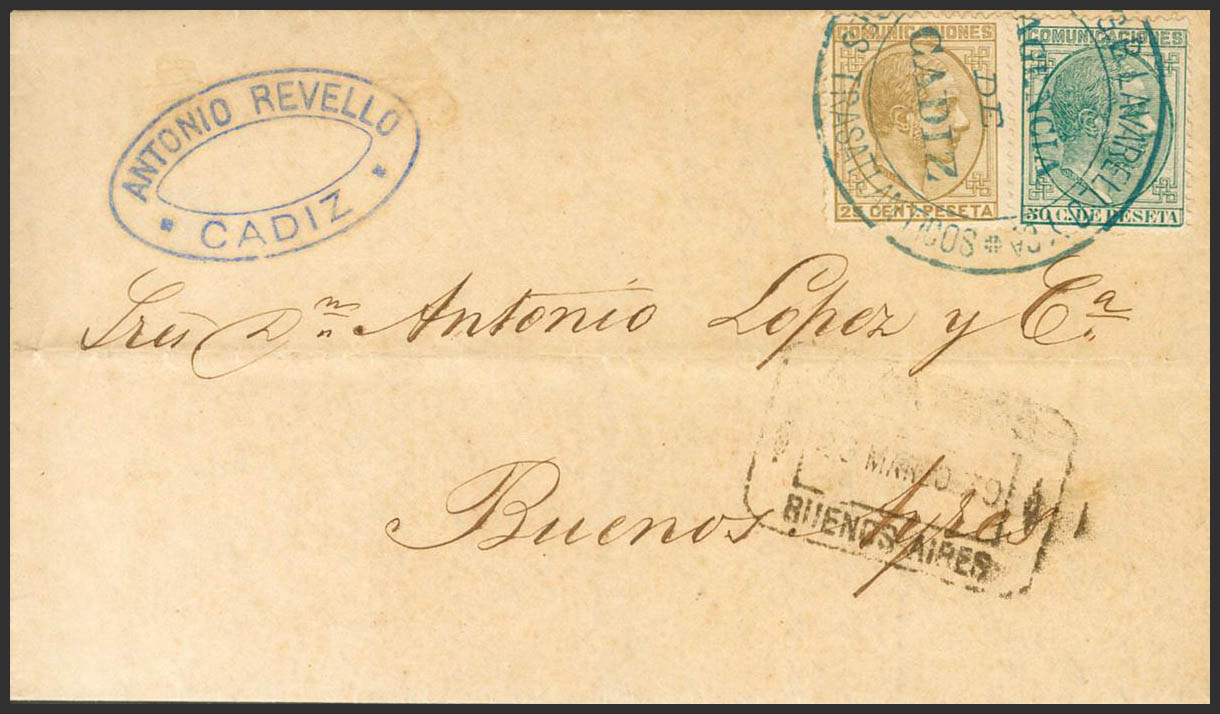 ANTONIO REVELLO
CADIZ
COMUNICACIONES
25 CENT. PESETA
COMUNICACIONES
50 C. DE PESETA
AGENCIA
DE
CADIZ
TRASATLANTICOS
Sres Dn Antonio Lopez y Ca.
Buenos Ayres
MARZO
BUENOS AIRES